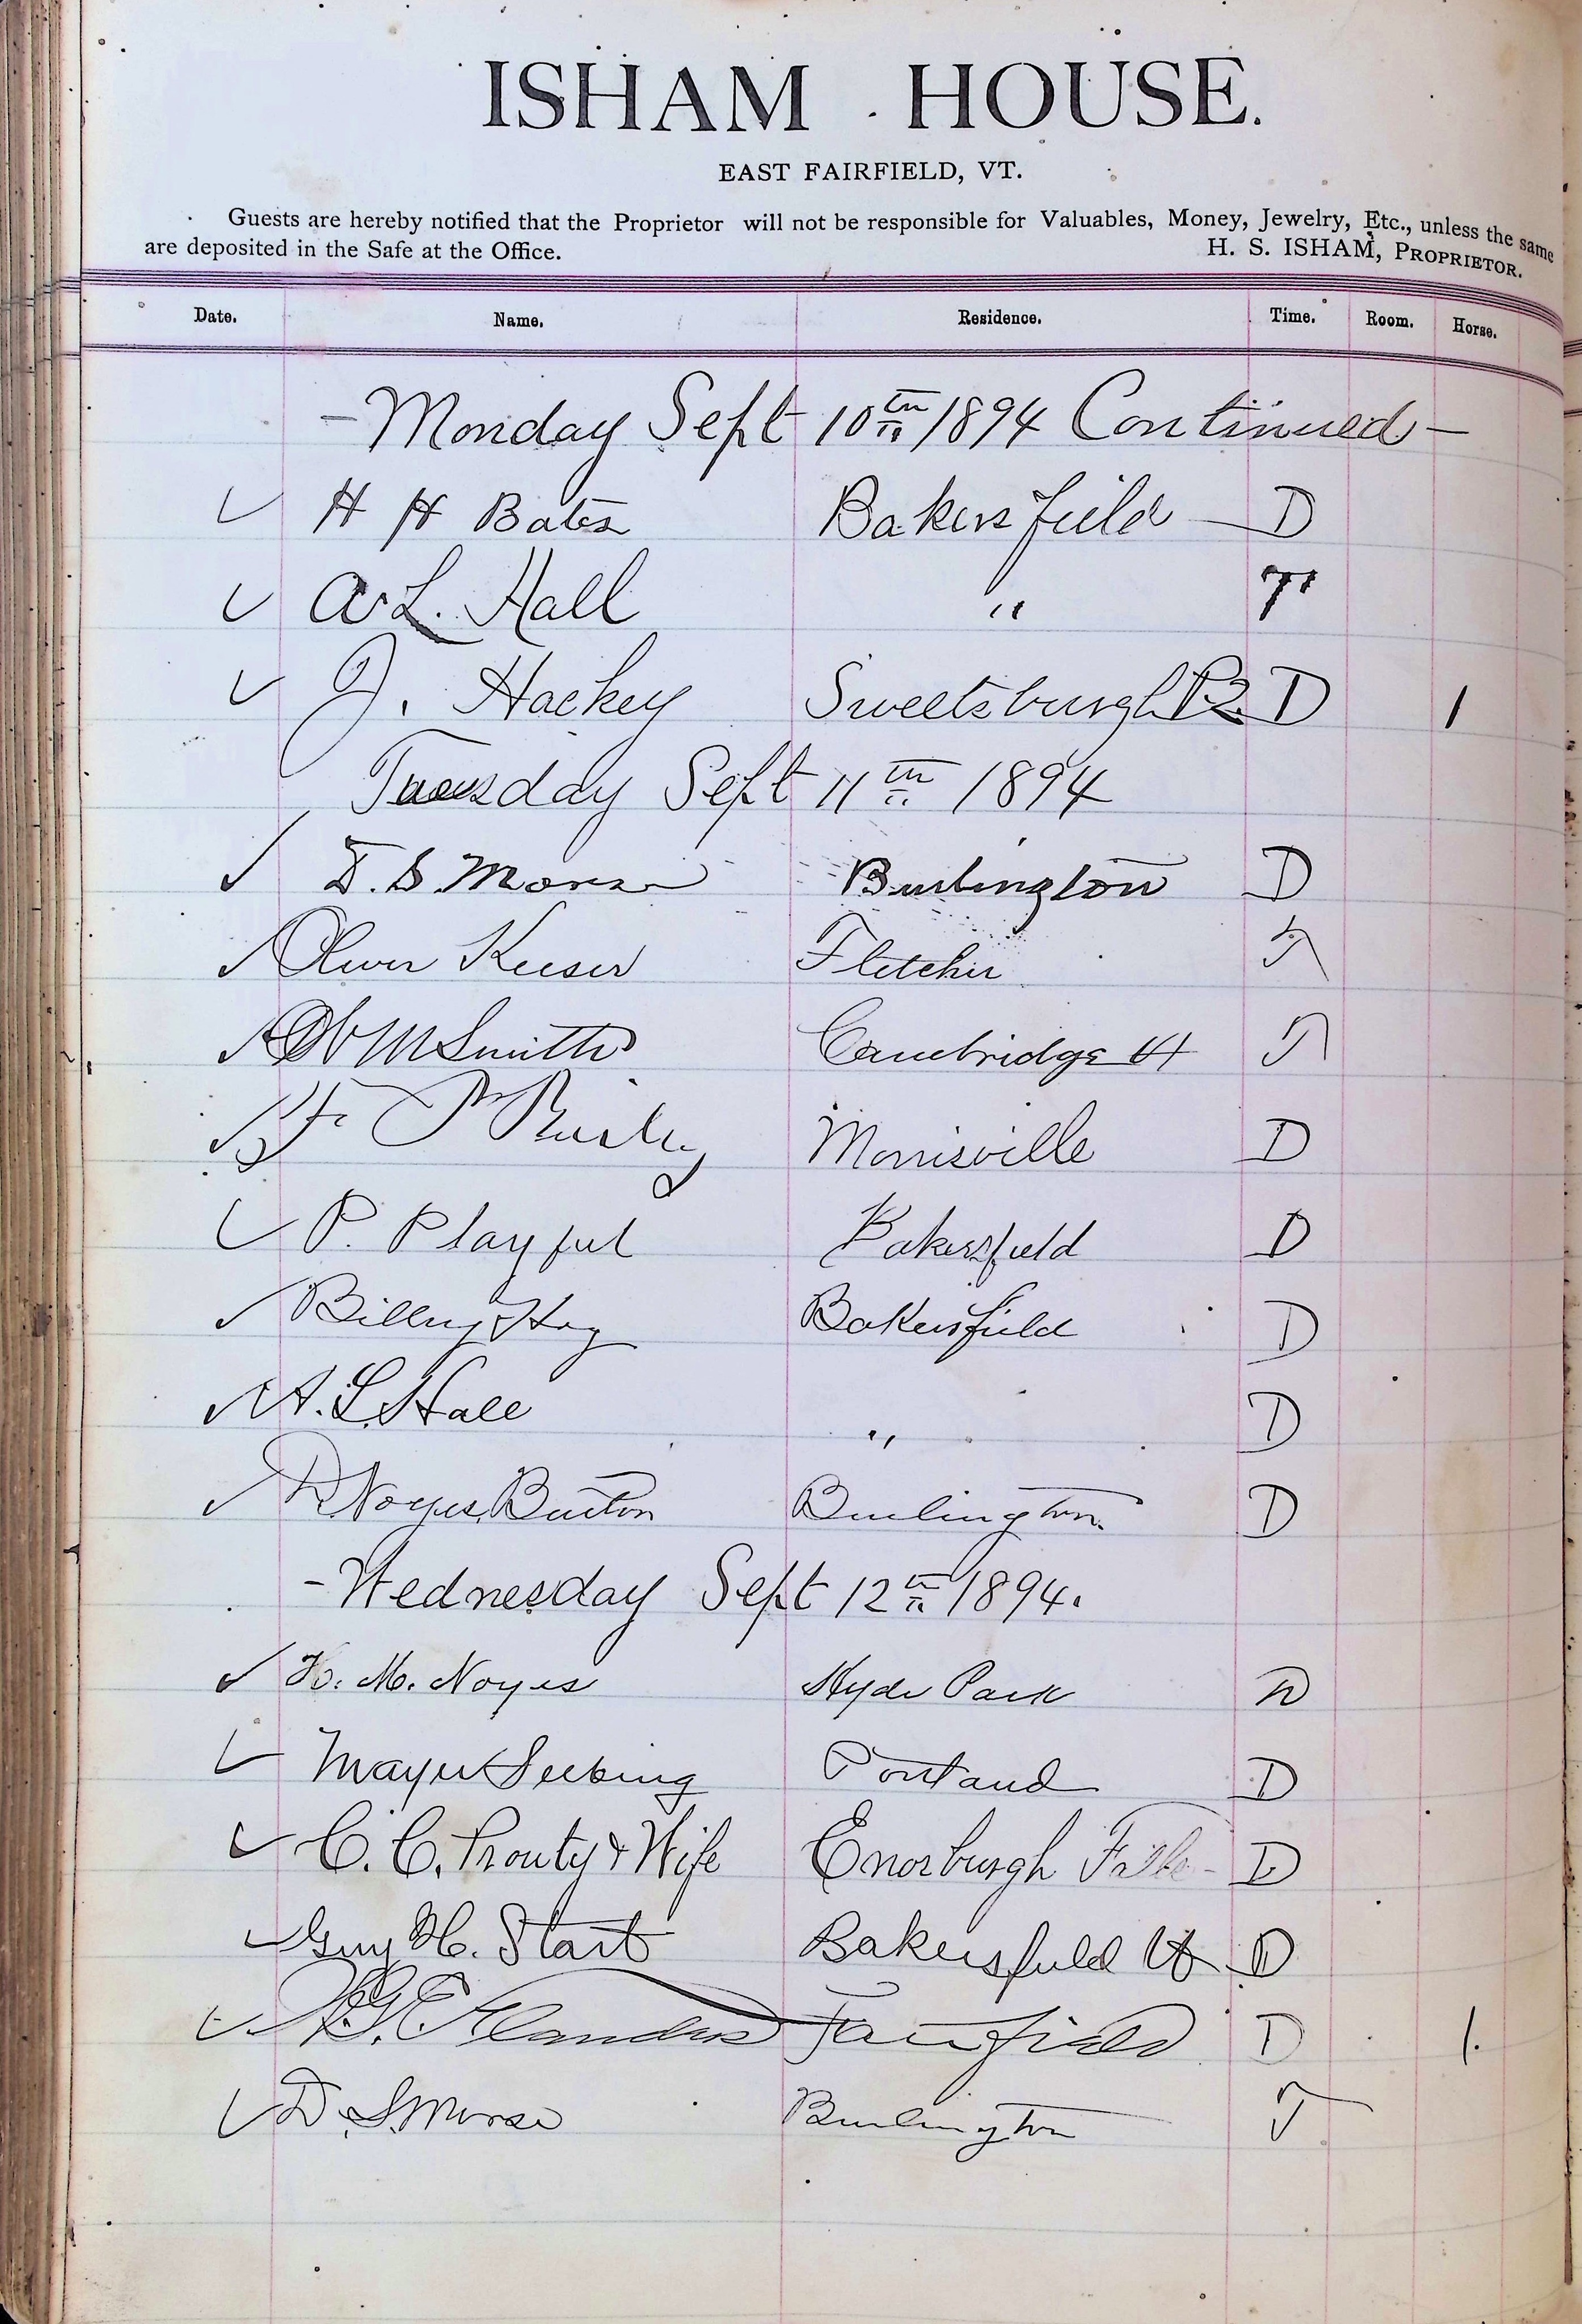 ISHAM HOUSE.
EAST FAIRFIELD, VT.
Guests are hereby notified that the Proprietor will not be responsible for Valuables, Money, Jewelry, Etc., unless the same
are deposited in the Safe at the Office. H. S. ISHAM, PROPRIETOR.
Date. Name. Residence. Time. Room. Horse.
- Monday Sept 10th 1894 Continued -
✓ H H Bates Bakersfield D
✓ A. L. Hall " T
✓ J. Hackey Sweetsburgh P2 D 1
Tuesday Sept 11th 1894
✓ D. S. Morse Burlington D
✓ Oliver Keeser Fletcher T
✓ Smith Cambridge Vt T
✓ Morrisville D
✓ P. Playful Bakersfield D
✓ Billery & Hog Bakersfield D
✓ A. L. Hall " D
✓ D. Noyes Burton Burlington D
- Wednesday Sept 12th 1894.
✓ H. M. Noyes Hyde Park D
✓ Mayer Portland D
✓ C. C. Prouty & Wife Enosburgh Falls - D
✓ Guy H. Start Bakersfield Vt D
✓ Flanders Fairfield D 1.
✓ D. S. Morse Burlington T